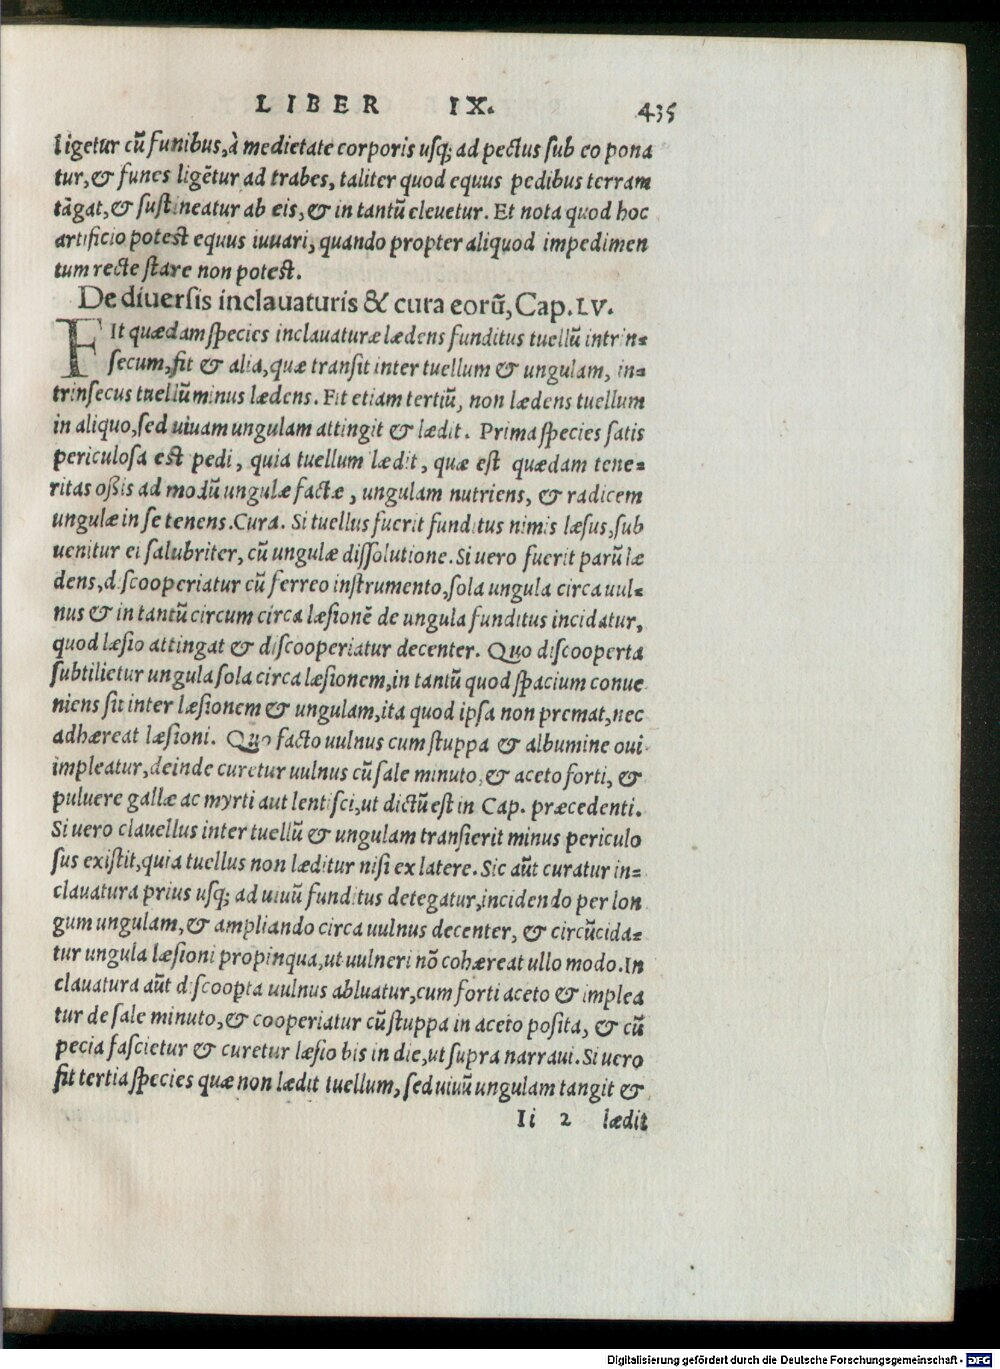 LIBER IX. 435
ligetur cũ funibus, à medietate corporis usq; ad pectus sub eo pona
tur, & funes ligẽtur ad trabes, taliter quod equus pedibus terram
tãgat, & sustineatur ab eis, & in tantũ eleuetur. Et nota quod hoc
artificio potest equus iuuari, quando propter aliquod impedimen
tum recte stare non potest.
De diuersis inclauaturis & cura eorũ, Cap. LV.
FIt quædam species inclauaturæ lædens funditus tuellũ intrin=
secum, fit & alia, quæ transit inter tuellum & ungulam, in=
trinsecus tuellũ minus lædens. Fit etiam tertiũ, non lædens tuellum
in aliquo, sed uiuam ungulam attingit & lædit. Prima species satis
periculosa est pedi, quia tuellum lædit, quæ est quædam tene=
ritas oßis ad modũ ungulæ factæ, ungulam nutriens, & radicem
ungulæ in se tenens. Cura. Si tuellus fuerit funditus nimis læsus, sub
uenitur ei salubriter, cũ ungulæ dissolutione. Si uero fuerit parũ læ
dens, discooperiatur cũ ferreo instrumento, sola ungula circa uul=
nus & in tantũ circum circa læsionẽ de ungula funditus incidatur,
quod læsio attingat & discooperiatur decenter. Quo discooperta
subtilietur ungula sola circa læsionem, in tantũ quod spacium conue
niens sit inter læsionem & ungulam, ita quod ipsa non premat, nec
adhæreat læsioni. Quo facto uulnus cum stuppa & albumine oui
impleatur, deinde curetur uulnus cũ sale minuto, & aceto forti, &
puluere gallæ ac myrti aut lentisci, ut dictũ est in Cap. præcedenti.
Si uero clauellus inter tuellũ & ungulam transierit minus periculo
sus existit, quia tuellus non læditur nisi ex latere. Sic aũt curatur in=
clauatura prius usq; ad uiuũ funditus detegatur, incidendo per lon
gum ungulam, & ampliando circa uulnus decenter, & circũcida=
tur ungula læsioni propinqua, ut uulneri nõ cohæreat ullo modo. In
clauatura aũt discoopta uulnus abluatur, cum forti aceto & implea
tur de sale minuto, & cooperiatur cũ stuppa in aceto posita, & cũ
pecia fascietur & curetur læsio bis in die, ut supra narraui. Si uero
fit tertia species quæ non lædit tuellum, sed uiuũ ungulam tangit &
Ii 2 lædit
Digitalisierung gefördert durch die Deutsche Forschungsgemeinschaft - DFG